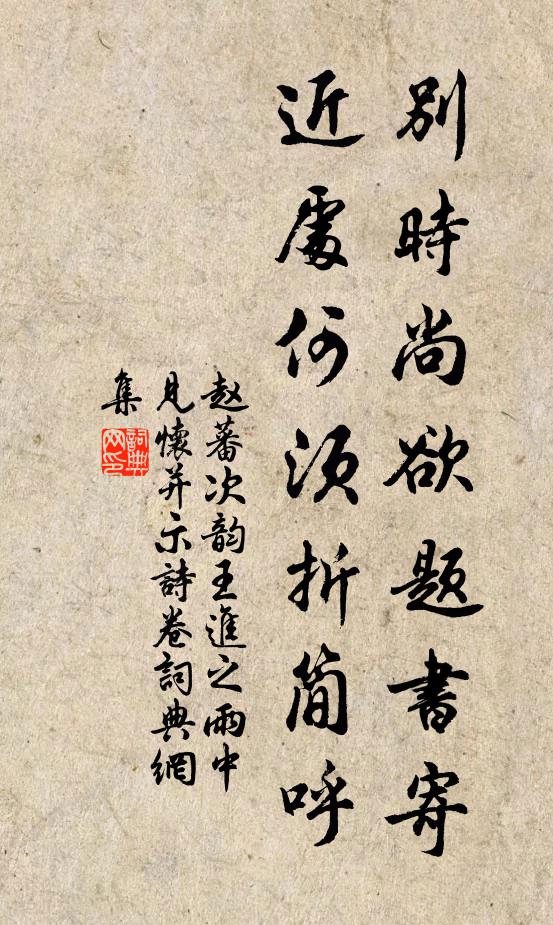 別時尚欲題書寄
近處何須折簡呼
赵蕃次韵王進之雨中
見懷并示詩卷詞典網
集
詞典
网印